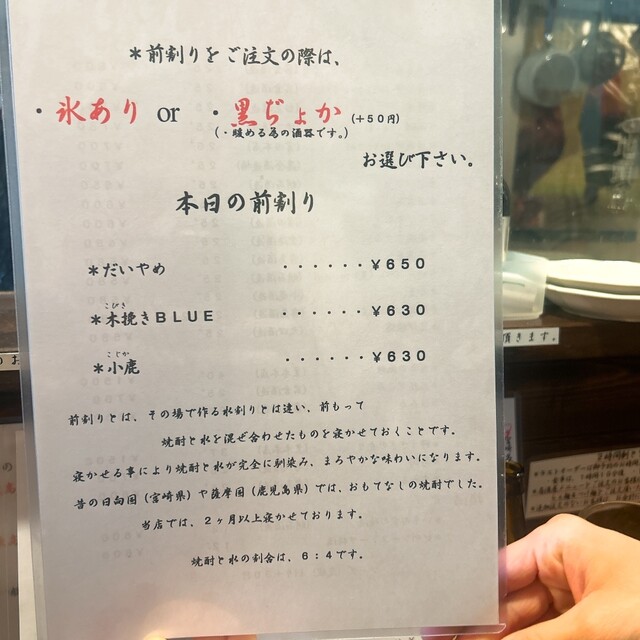 ＊前割りをご注文の際は、
・氷あり or ・黒ぢょか (＋５０円)
(・暖める為の酒器です。)
お選び下さい。
本日の前割り
＊だいやめ ・・・・・・￥６５０
こびき
＊木挽きＢＬＵＥ ・・・・・・￥６３０
こじか
＊小鹿 ・・・・・・￥６３０
前割りとは、その場で作る水割りとは違い、前もって
焼酎と水を混ぜ合わせたものを寝かせておくことです。
寝かせる事により焼酎と水が完全に馴染み、まろやかな味わいになります。
昔の日向国（宮崎県）や薩摩国（鹿児島県）では、おもてなしの焼酎でした。
当店では、２ヶ月以上寝かせております。
焼酎と水の割合は、６：４です。
頂きます。